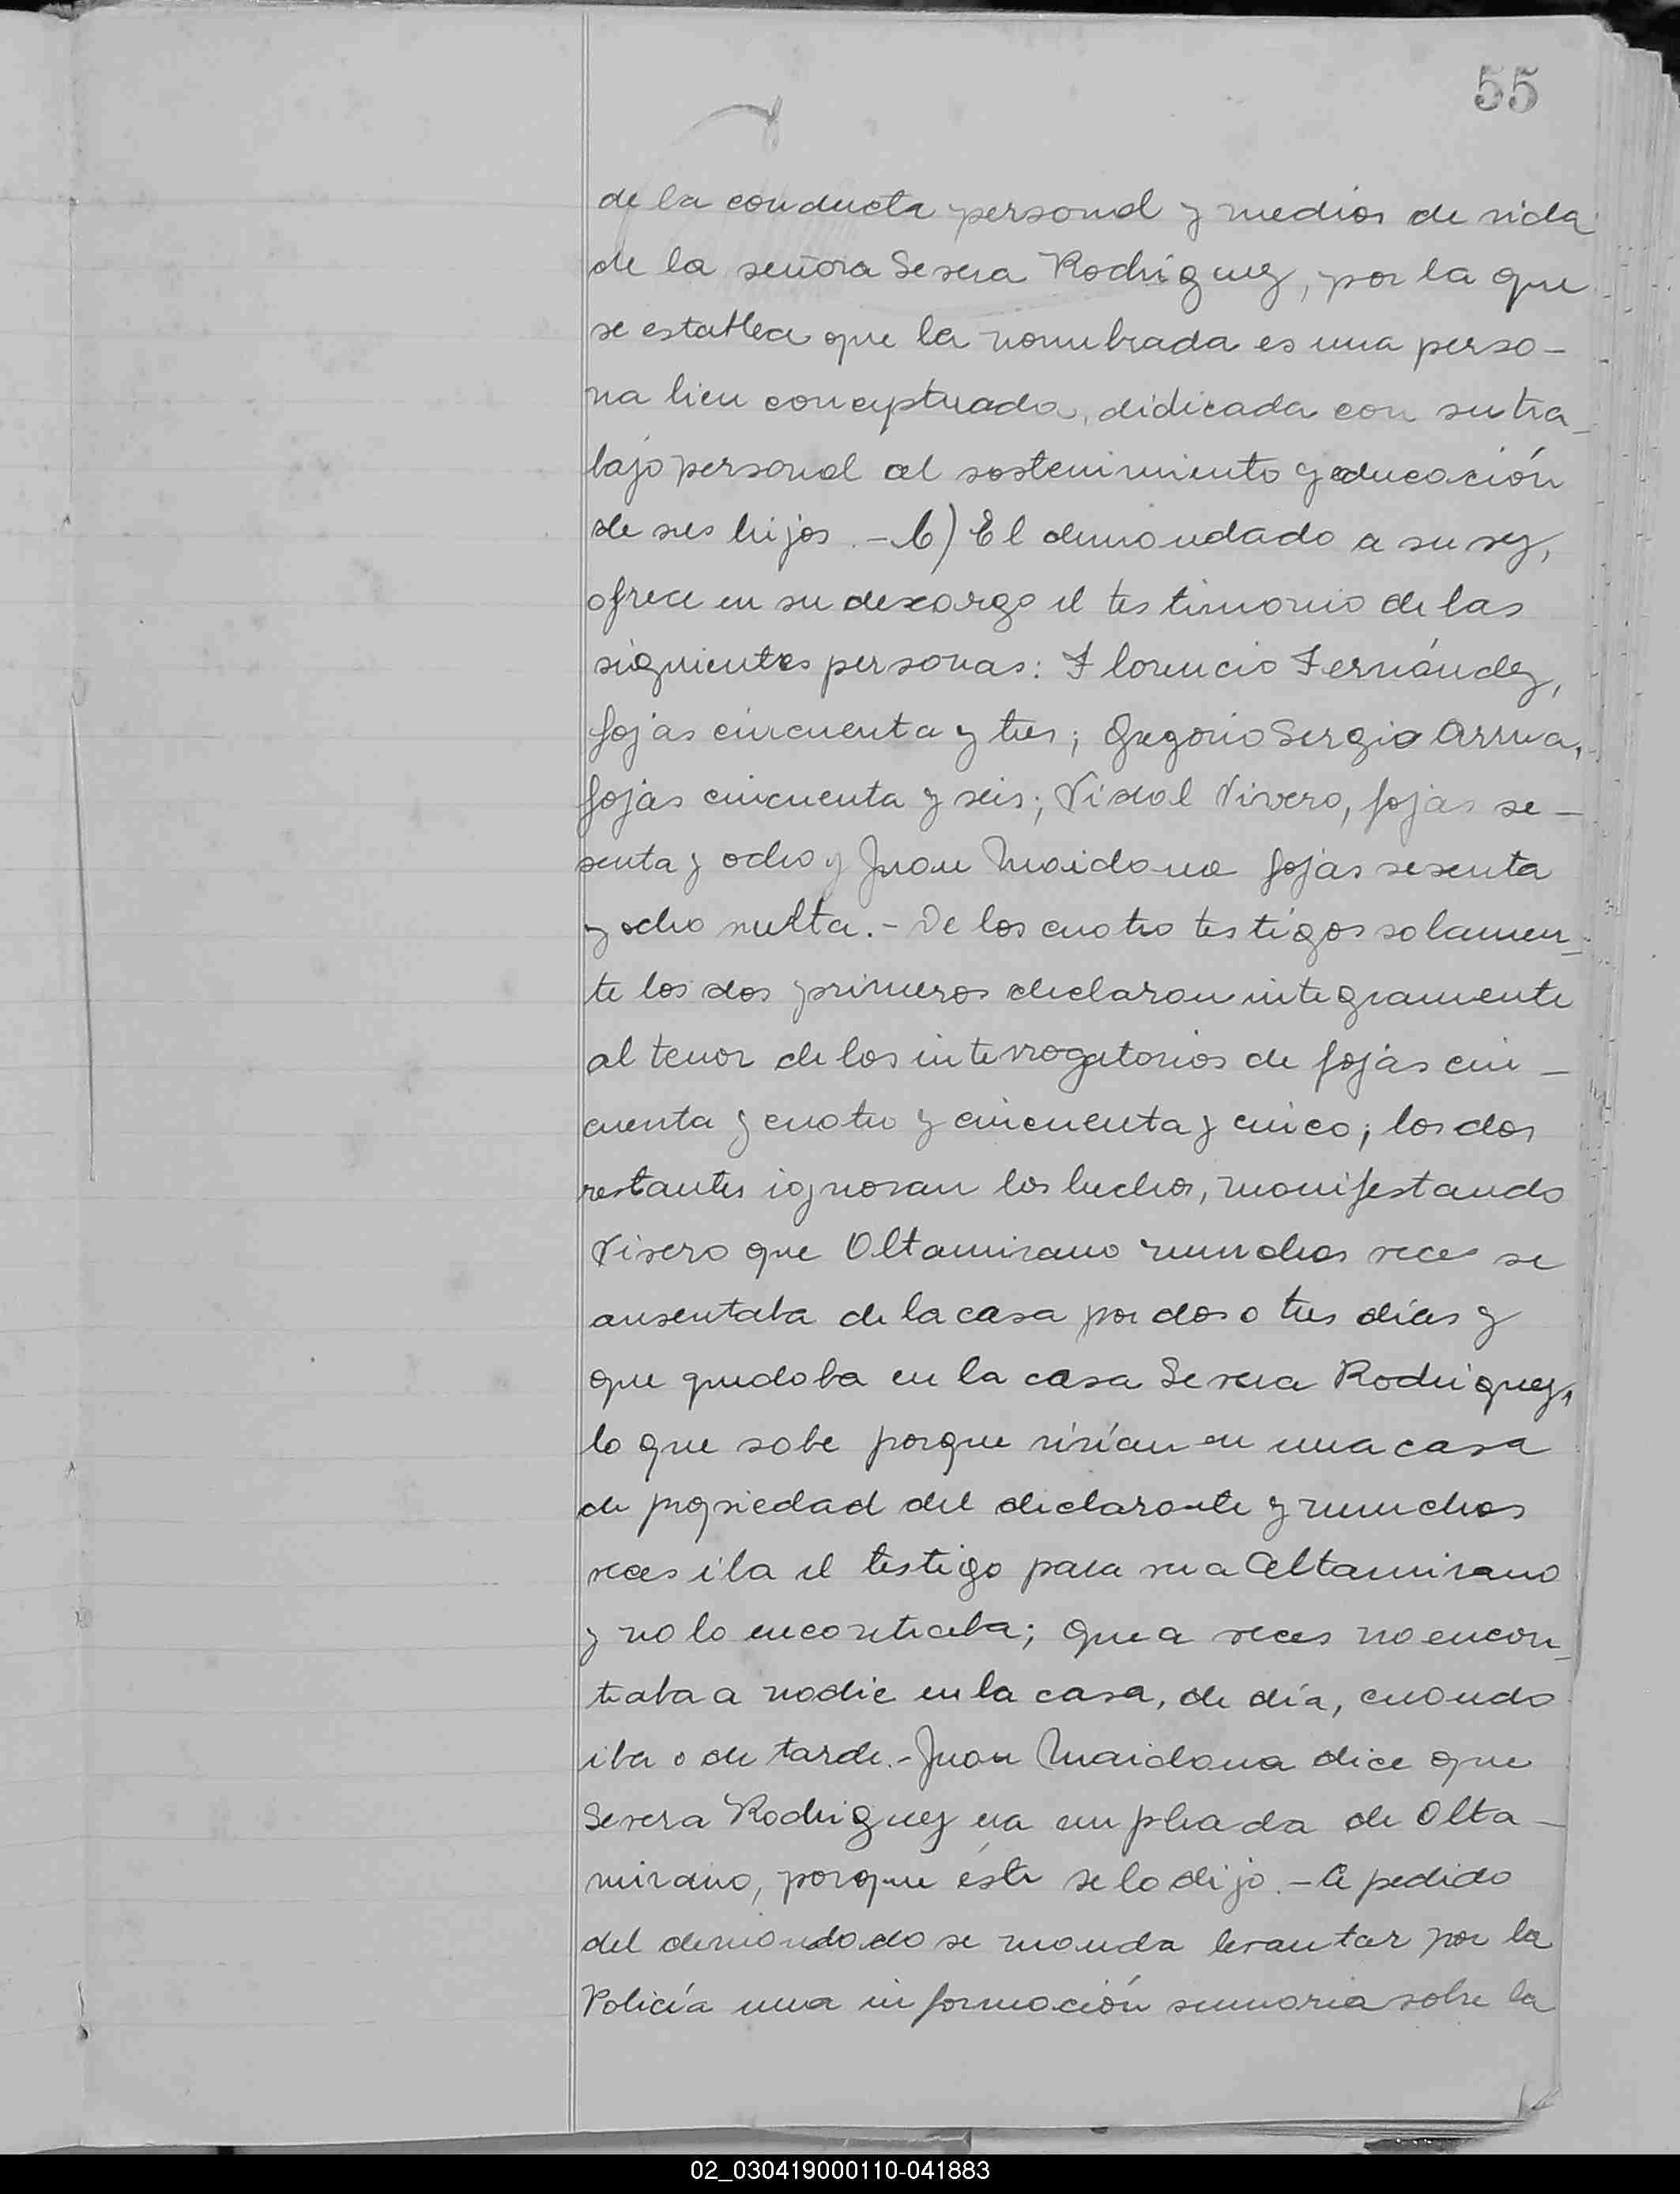 55
de la conducta personal y medios de vida
de la señora Severa Rodriguez, por la que
se establece que la nombrada es una perso-
na bien conceptuada, didicada con su tra-
bajo personal al sostenimiento y educación
de sus hijos.- b) El demandado a su vez,
ofrece en su descargo el testimonio de las
siguientes personas: Florencio Fernández,
fojas cincuenta y tres; Gregorio Sergio Arrua,
fojas cincuenta y seis; Vidal Vivero, fojas se-
senta y ocho y Juan Maidana fojas sesenta
y ocho vuelta.- De los cuatro testigos solamen-
te los dos primeros declaran integramente
al tenor de los interrogatorios de fojas cin-
cuenta y cuatro y cincuenta y cinco; los dos
restantes ignoran los hechos, manifestando
Vivero que Altamirano muchas veces se
ausentaba de la casa por dos o tres días y
que quedaba en la casa Severa Rodriguez,
lo que sabe porque vivían en una casa
de propiedad del declarante y muchas
veces iba el testigo para ver a Altamirano
y no lo encontraba; que a veces no encon-
traba a nadie en la casa, de día, cuando
iba o de tarde.- Juan Maidana dice que
Severa Rodriguez era empleada de Alta-
mirano, porque éste se lo dijo.- A pedido
del demandado se manda levantar por la
Policía una información sumaria sobre la
02_030419000110-041883